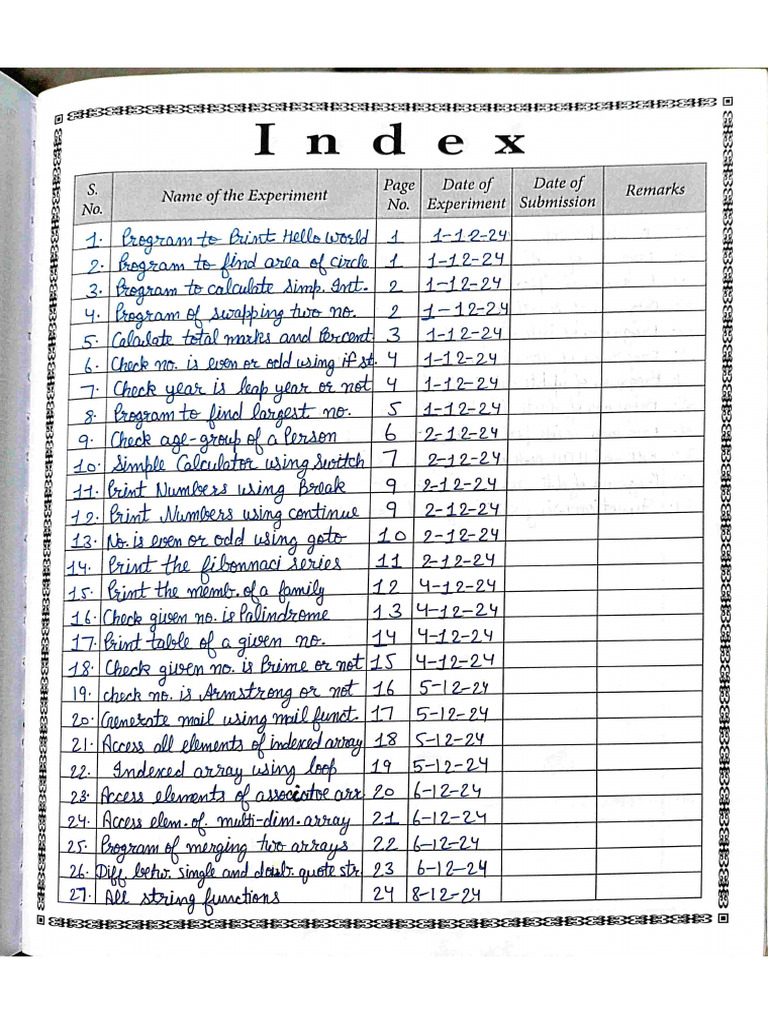 Index
S. No. Name of the Experiment Page No. Date of Experiment Date of Submission Remarks
1. Program to Print Hello World 1 1-12-24
2. Program to find area of circle 1 1-12-24
3. Program to calculate simp. Int. 2 1-12-24
4. Program of swapping two no. 2 1-12-24
5. Calculate total marks and Percent. 3 1-12-24
6. Check no. is even or odd using if st. 4 1-12-24
7. Check year is leap year or not 4 1-12-24
8. Program to find largest no. 5 1-12-24
9. Check age-group of a Person 6 2-12-24
10. Simple Calculator using Switch 7 2-12-24
11. Print Numbers using Break 9 2-12-24
12. Print Numbers using continue 9 2-12-24
13. No. is even or odd using goto 10 2-12-24
14. Print the fibonnaci series 11 2-12-24
15. Print the memb. of a family 12 4-12-24
16. Check given no. is Palindrome 13 4-12-24
17. Print table of a given no. 14 4-12-24
18. Check given no. is Prime or not 15 4-12-24
19. check no. is Armstrong or not 16 5-12-24
20. Generate mail using mail funct. 17 5-12-24
21. Access all elements of indexed array 18 5-12-24
22. Indexed array using loop 19 5-12-24
23. Access elements of associatve arr. 20 6-12-24
24. Access elem. of. multi-dim. array 21 6-12-24
25. Program of merging two arrays 22 6-12-24
26. Diff. betw. single and doub. quote str. 23 6-12-24
27. All string functions 24 8-12-24